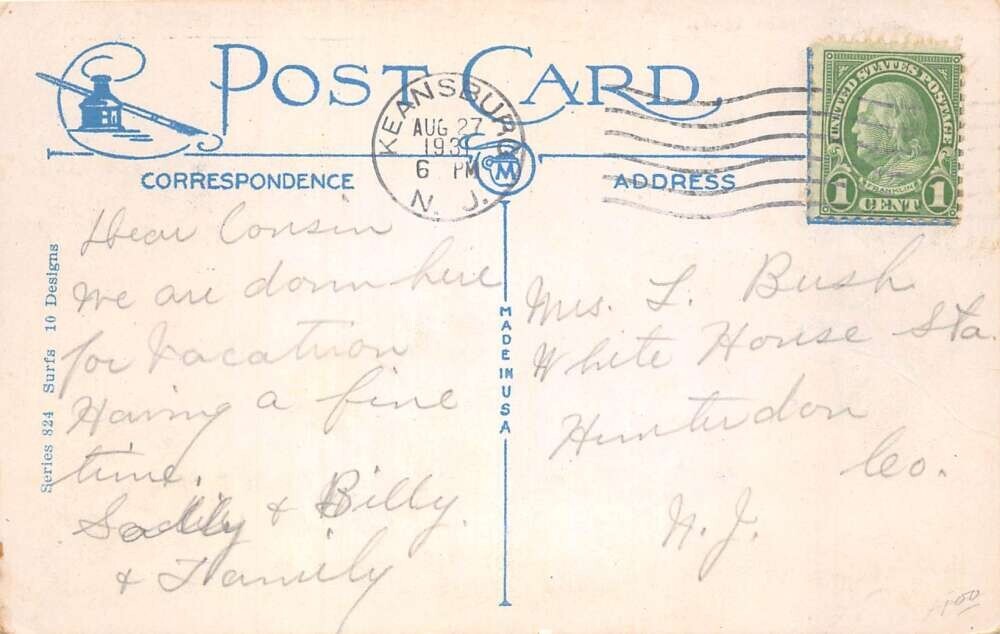 POST CARD
KEANSBURG
AUG 27
1931
6 PM
N. J.
M
UNITED STATES POSTAGE
FRANKLIN
1 CENT 1
CORRESPONDENCE
ADDRESS
Dear Cousin
We are down here
for Vacation
Having a fine
time.
& Billy.
& Family
Series 824 Surfs 10 Designs
MADE IN USA
Mrs. L. Bush
White House Sta.
Hunterdon
Co.
N. J.
1.00